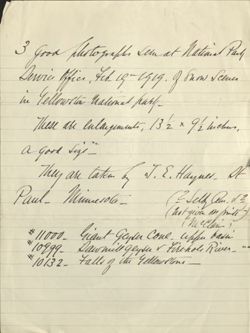 3 Good photographs seen at National Park
Service Office, Feb 19th 1919. of snow scenes
in Yellowstone National park.
These are enlargements, 13½ × 9½ inches,
a good size
They are taken by J. E. Haynes, St
Paul - Minnesota -
(Selby Ave
#11000 - Giant Geyser Cone, upper basin
#10999 - Sawmill Geyser & Firehole River
#10132 - Falls of the Yellowstone -